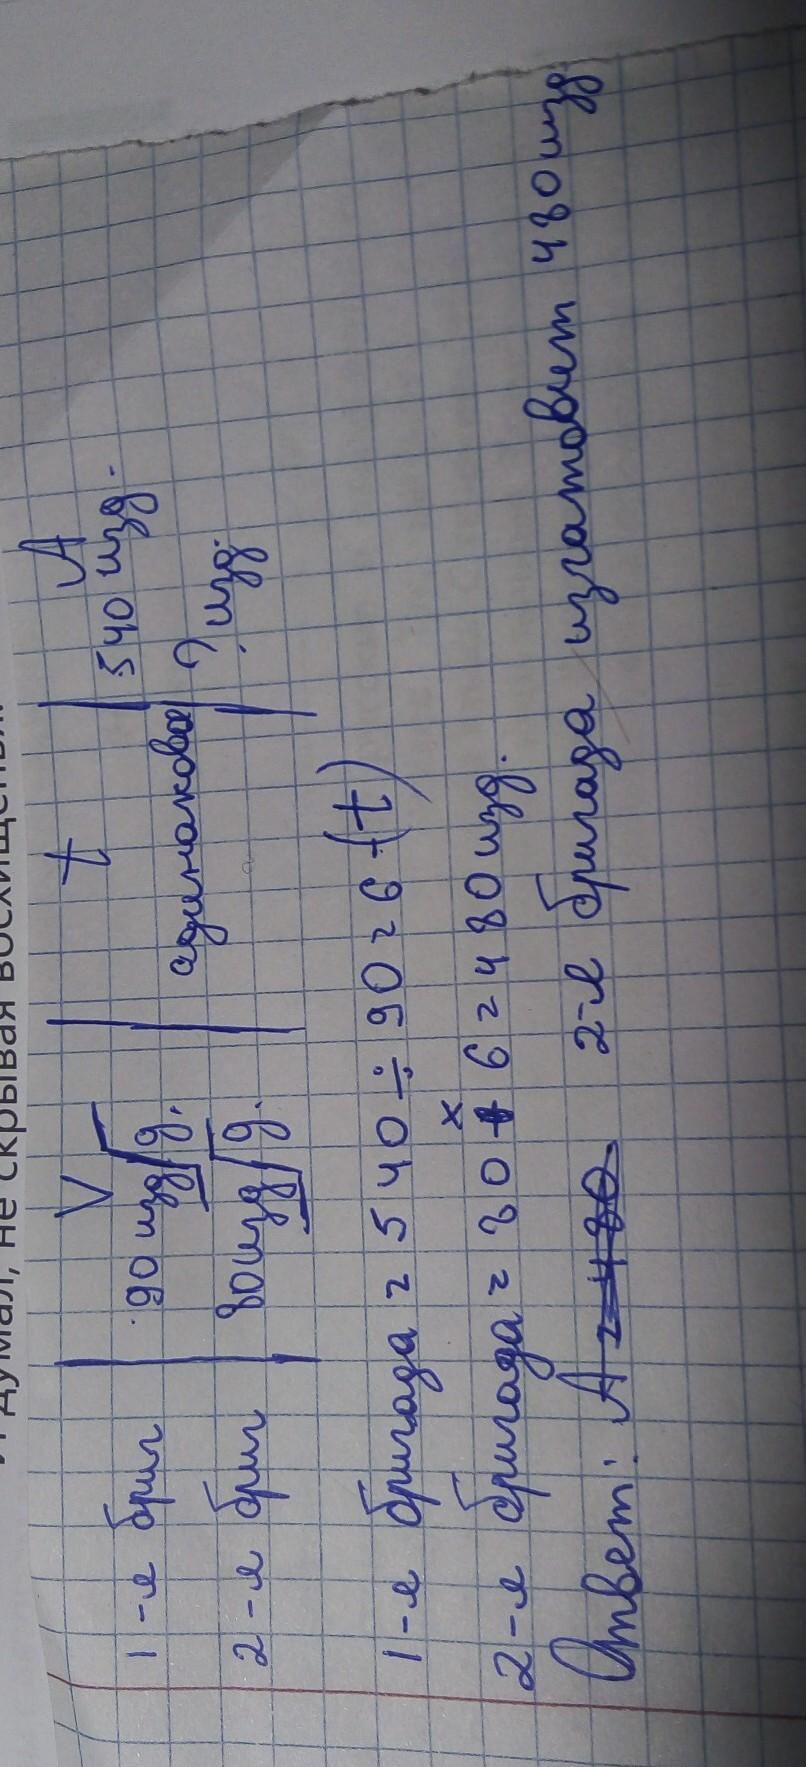 и думал, не скрывая восхищенья.
V t A
1-я бриг 90 изд/д. 540 изд.
одинаковое
2-я бриг 80 изд/д. ? изд.
1-я бригада = 540 ÷ 90 = 6 (t)
2-я бригада = 80 × 6 = 480 изд.
Ответ: А = 480 2-я бригада изготовит 480 изд